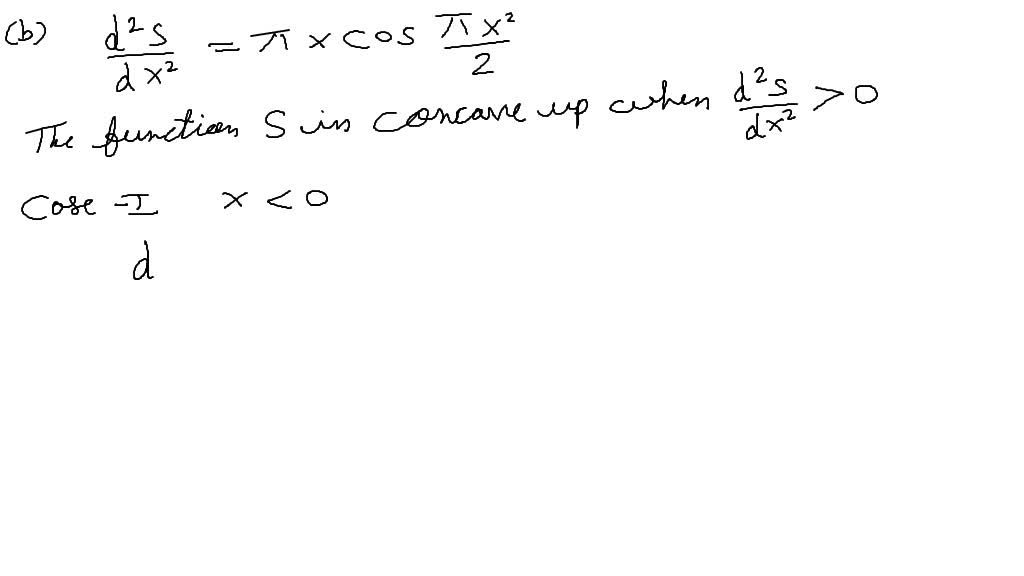 (b) d²S/dx² = π x cos πx²/2
The function S is concave up when d²s/dx² > 0
Case - I x < 0
d